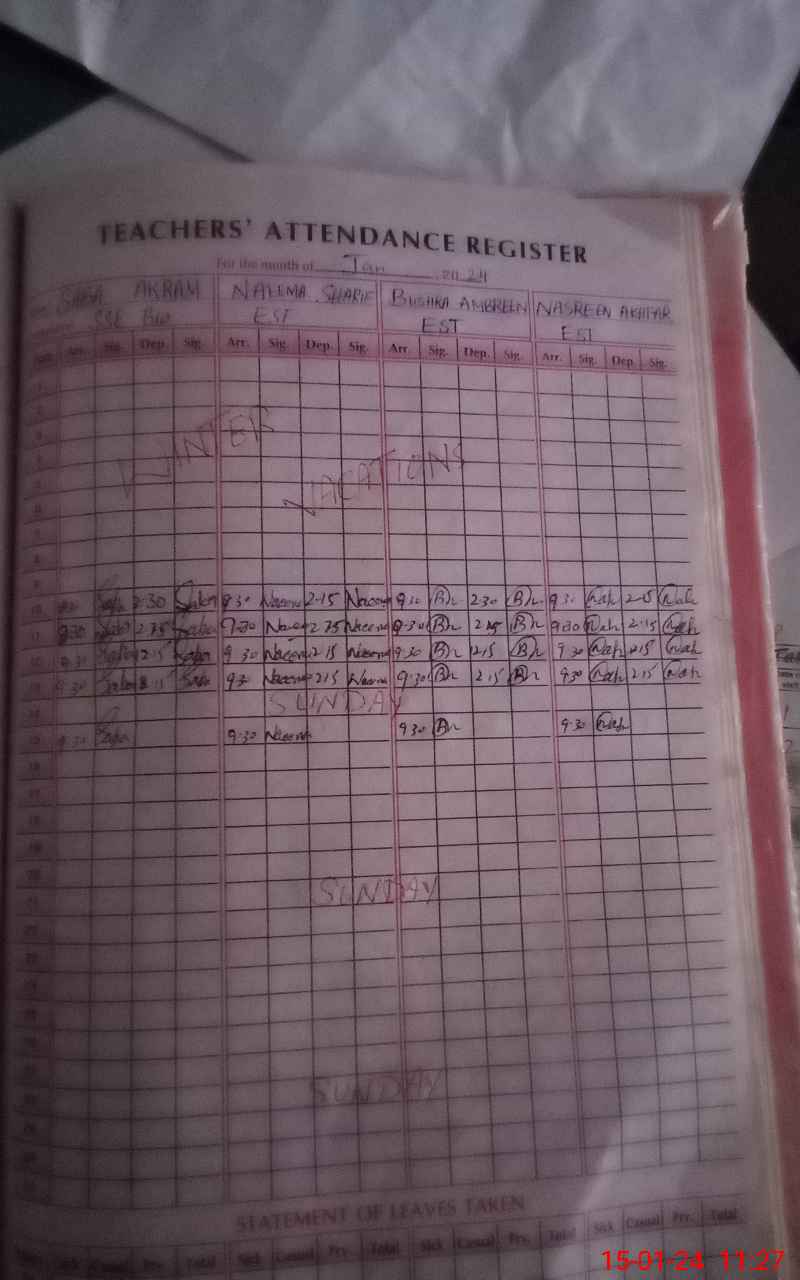 TEACHERS' ATTENDANCE REGISTER
For the month of Jan 20 24
SABA AKRAM NAEEMA SHARIF BUSHRA AMBREEN NASREEN AKHTAR
SSE Bio EST EST EST
Arr. Sig. Dep. Sig. Arr. Sig. Dep. Sig. Arr. Sig. Dep. Sig. Arr. Sig. Dep. Sig.
1
2
3
4
WINTER
5
VACATIONS
6
7
8
9
10 9:30 Saba 2:30 Saba 9:30 Naeema 2:15 Naeema 9:30 2:30 9:30 2:15
11 9:30 Saba 2:15 Saba 9:30 Naeema 2:15 Naeema 9:30 2:15 9:30 2:15
12 9:30 Saba 2:15 Saba 9:30 Naeema 2:15 Naeema 9:30 2:15 9:30 2:15
13 9:30 Saba 2:15 Saba 9:30 Naeema 2:15 Naeema 9:30 2:15 9:30 2:15
14 SUNDAY
15 9:30 Saba 9:30 Naeema 9:30 9:30
16
17
18
19
20
21 SUNDAY
22
23
SUNDAY
STATEMENT OF LEAVES TAKEN
Sick Casual Prv. Total Sick Casual Prv. Total Sick Casual Prv. Total Sick Casual Prv. Total
15-01-24 11:27